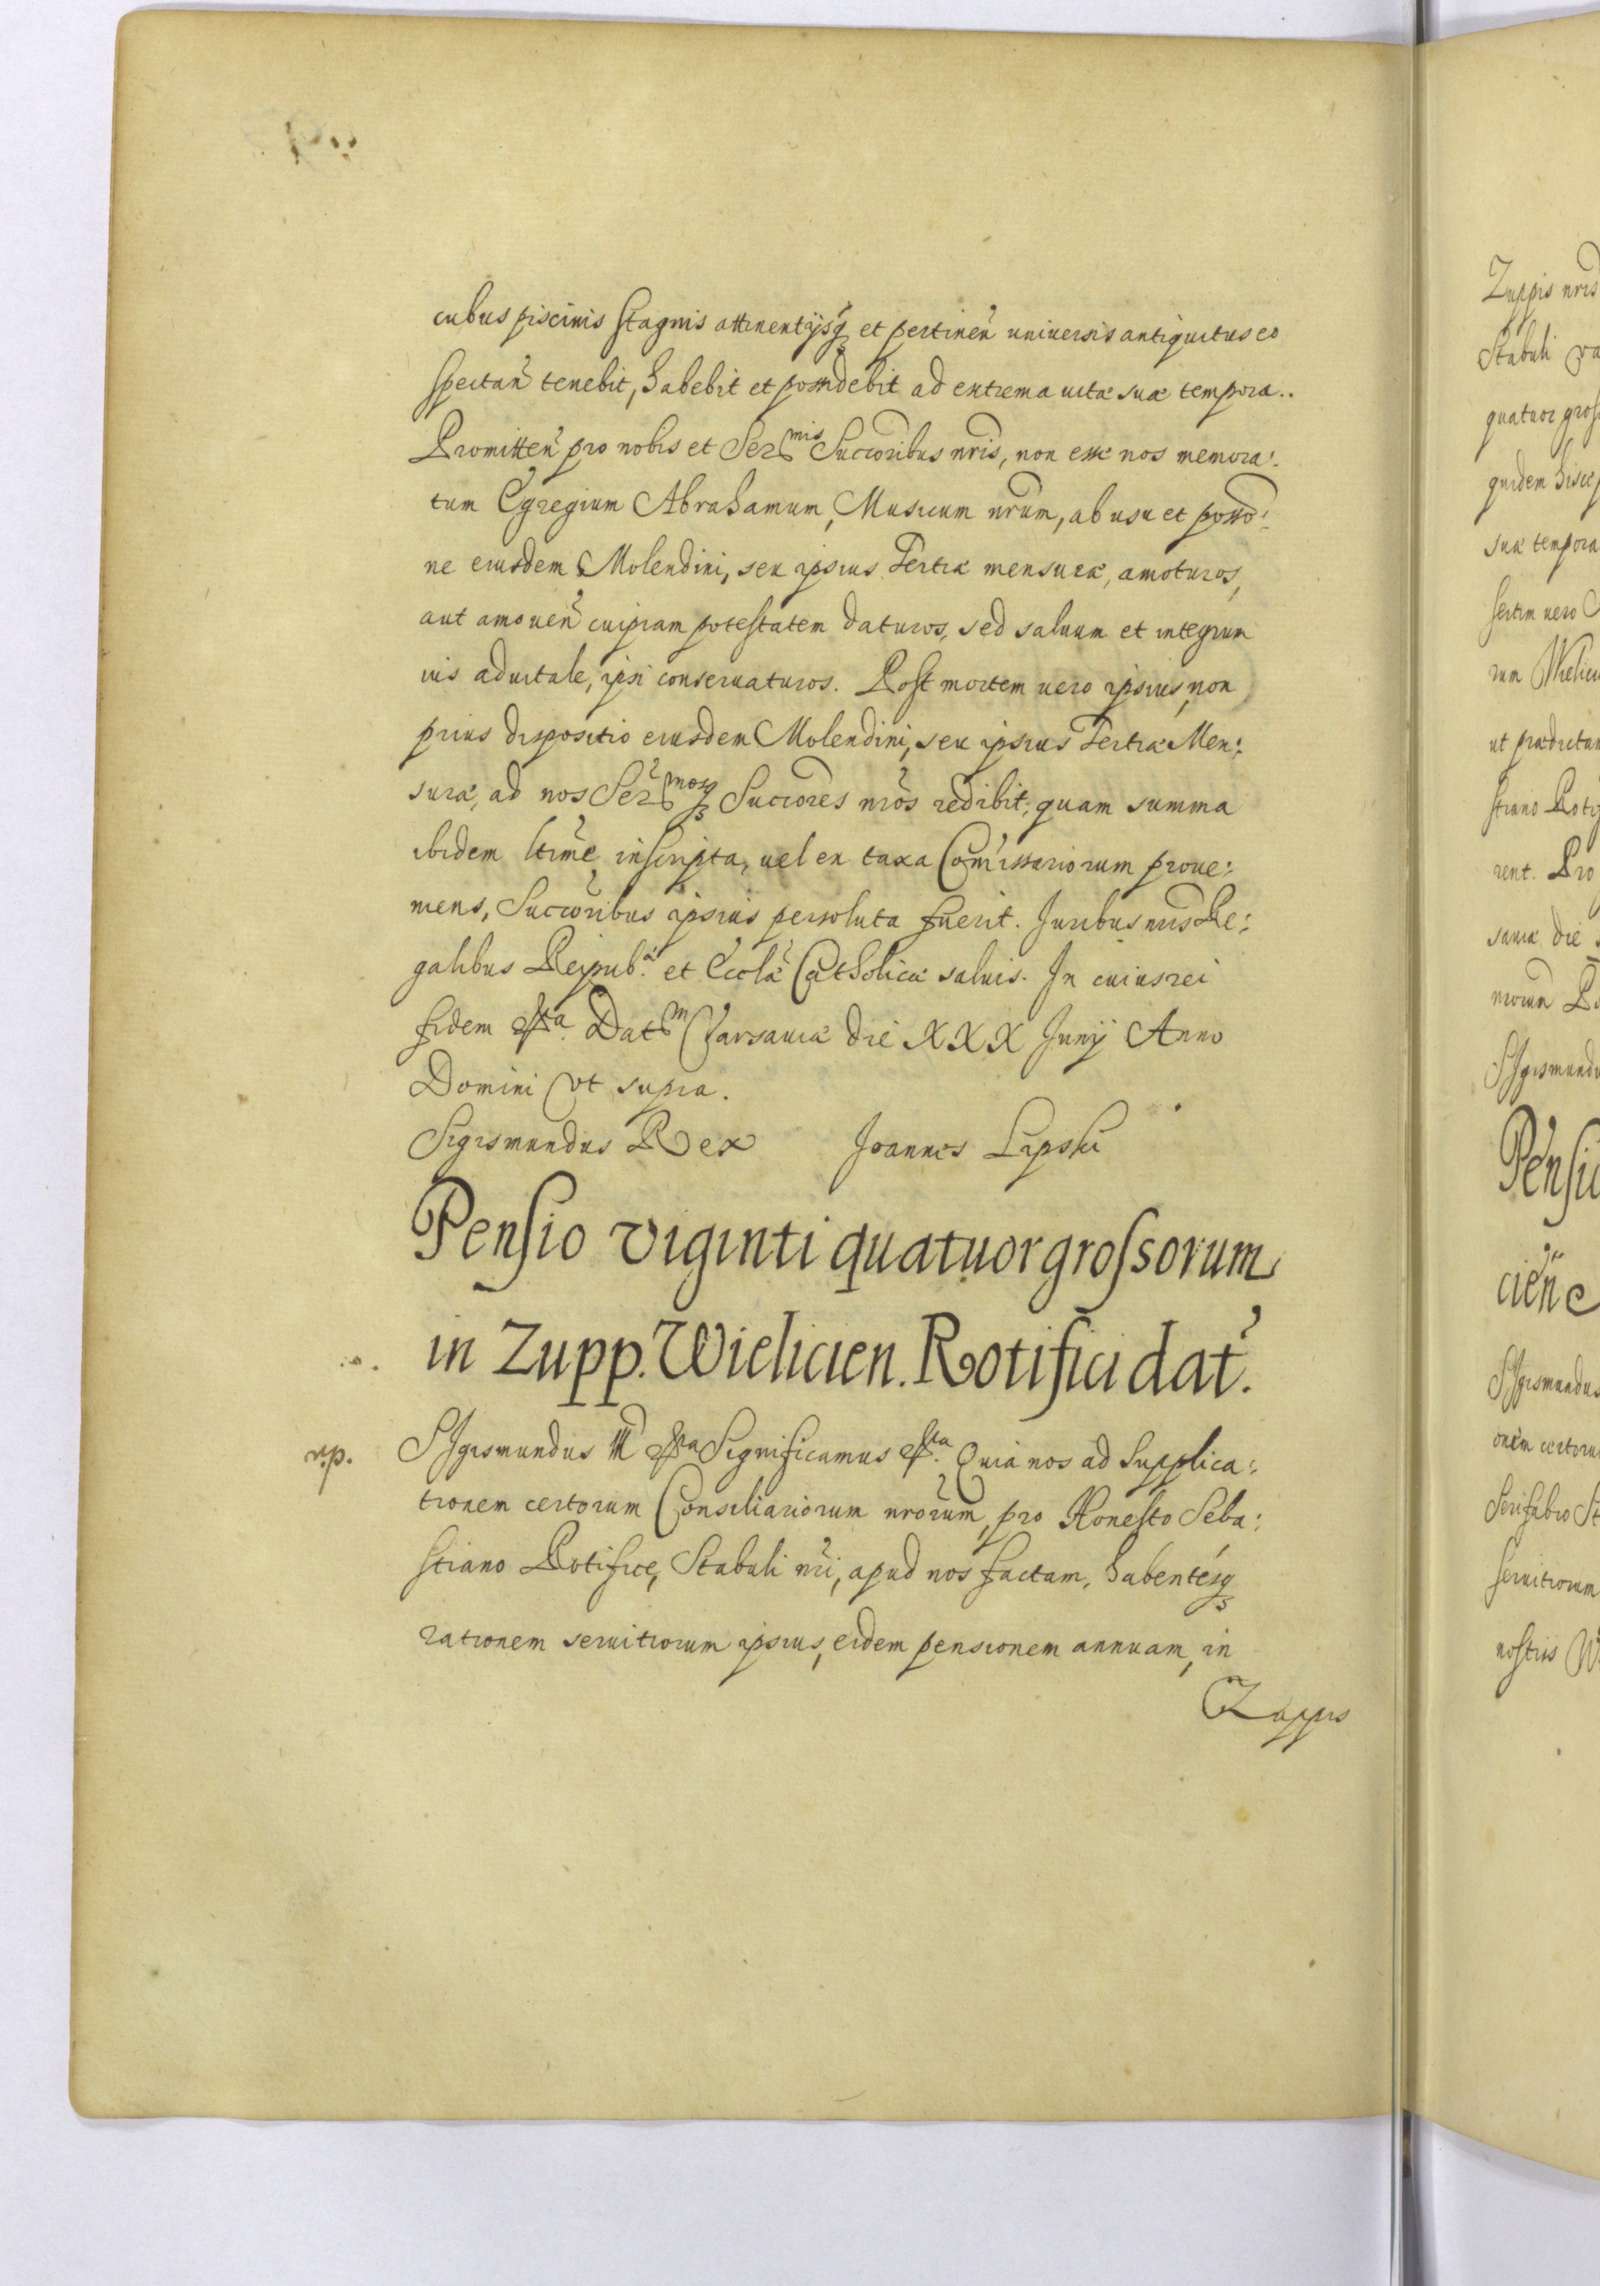 cubus piscinis stagnis attinentijsq et pertinen universis antiquitus eo
spectan tenebit, habebit et possidebit ad extrema vitæ suæ tempora..
Promitten pro nobis et Ser mis Succoribus nris, non esse nos memora:
tum Egregium Abrahamum, Musicum nrum, ab usu et posso:
ne eiusdem Molendini, seu ipsius Tertiæ mensuræ, amoturos,
aut amouen cuipiam potestatem daturos, sed saluum et integrum
ius aduitale, ipsi conseruaturos. Post mortem uero ipsius, non
prius dispositio eiusdem Molendini, seu ipsius Tertiæ Men:
suræ, ad nos Ser mosq Succores nros redibit, quam summa
ibidem ltime inscripta, uel ex taxa Comissariorum proue:
niens, Succoribus ipsius persoluta fuerit. Juribus nris Re:
galibus Reipub. et Eccla Catholicæ saluis. In cuius rei
fidem &ta. Dat m Varsauiæ die XXX Junij Anno
Domini vt supra.
Sigismundus Rex Joannes Lipski
Pensio viginti quatuor grossorum
in Zupp. Wielicien. Rotifici dat.
np. SIgismundus III &ta Significamus &ta. Quia nos ad supplica:
tionem certorum Consiliariorum nrorum, pro Honesto Seba:
stiano Rotifice, Stabuli nri, apud nos factam, habentesq
rationem seruitiorum ipsius, eidem pensionem annuam, in
Zuppis
Zuppis nris
Stabuli
quatuor
quidem
suæ tempora
rum
Sigismundus